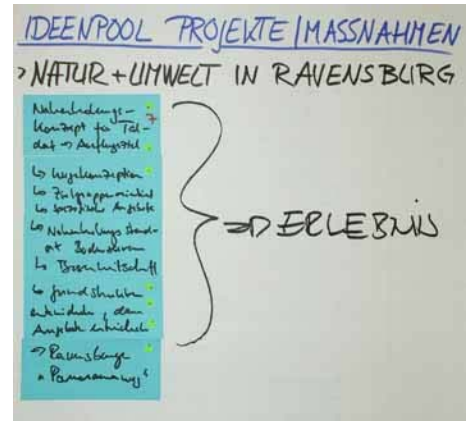 IDEENPOOL PROJEKTE/MASSNAHMEN
> NATUR + UMWELT IN RAVENSBURG
Naherholungs-
konzept für Tal-
dorf → Ausflugsziel
7
↳ Wegekonzeption
↳ Zielgruppenorientiert
↳ touristische Angebote
↳ Naherholungs Stand-
ort Bodenseeraum
↳
↳ Grundstrukturen
entwickeln, dann
Angebote entwickeln
→ Ravensburger
"Panoramaweg"
⇒ ERLEBNIS